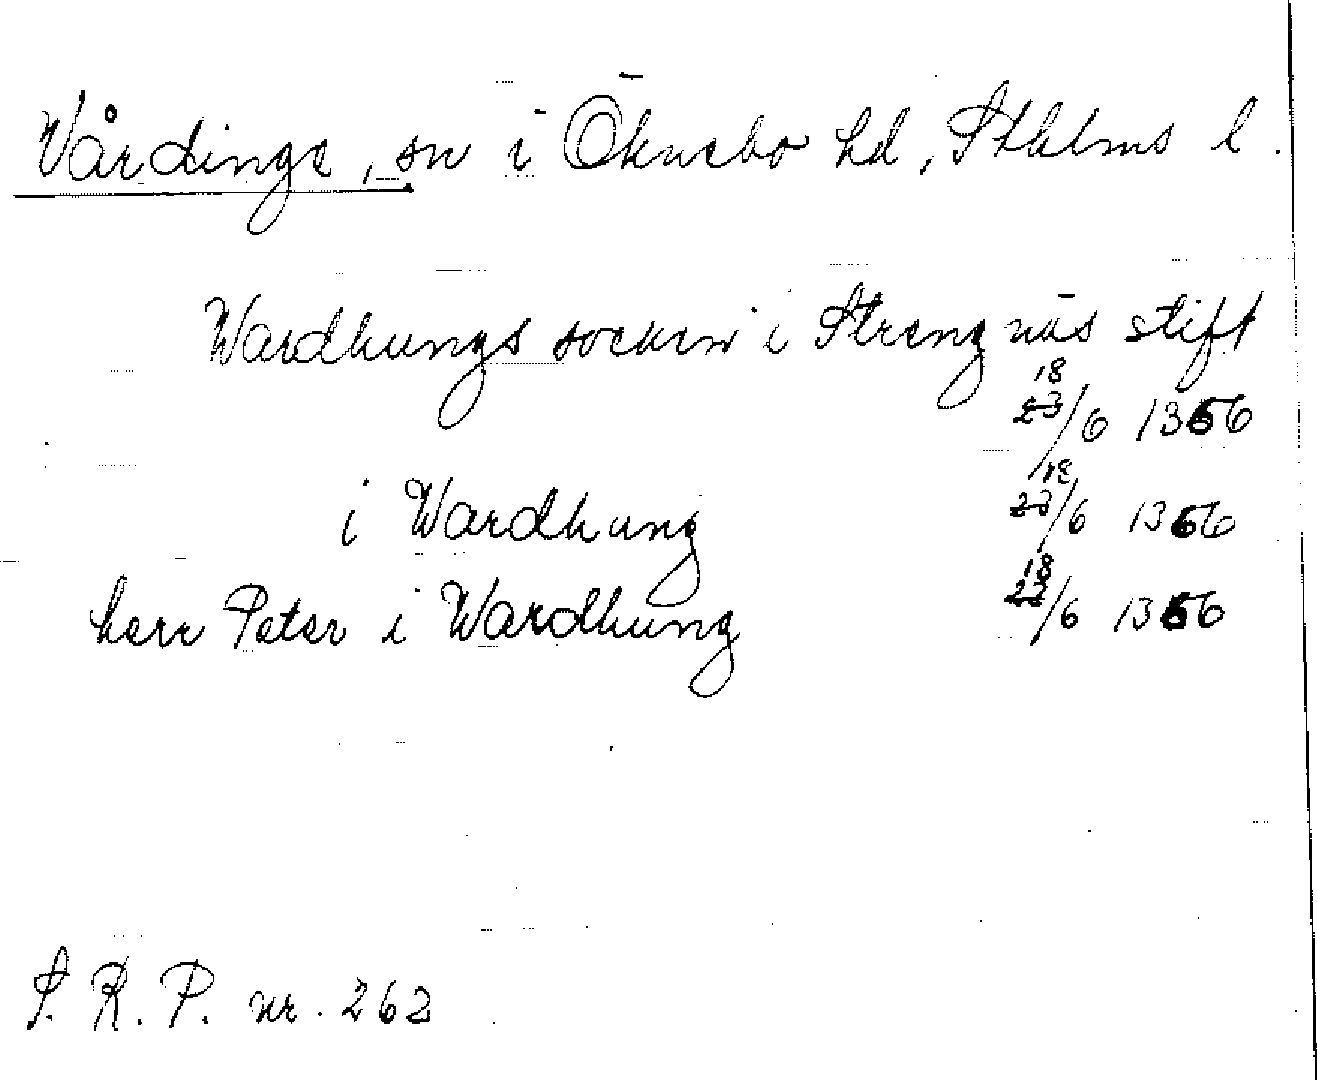 Vårdinge, sn i Öknebo hd, Sthlms l.
Wardhungs socken i Strengnäs stift
18
23/6 1356
i Wardhung
18
23/6 1356
herr Peter i Wardhung
18
23/6 1356
S. R. P. nr. 262